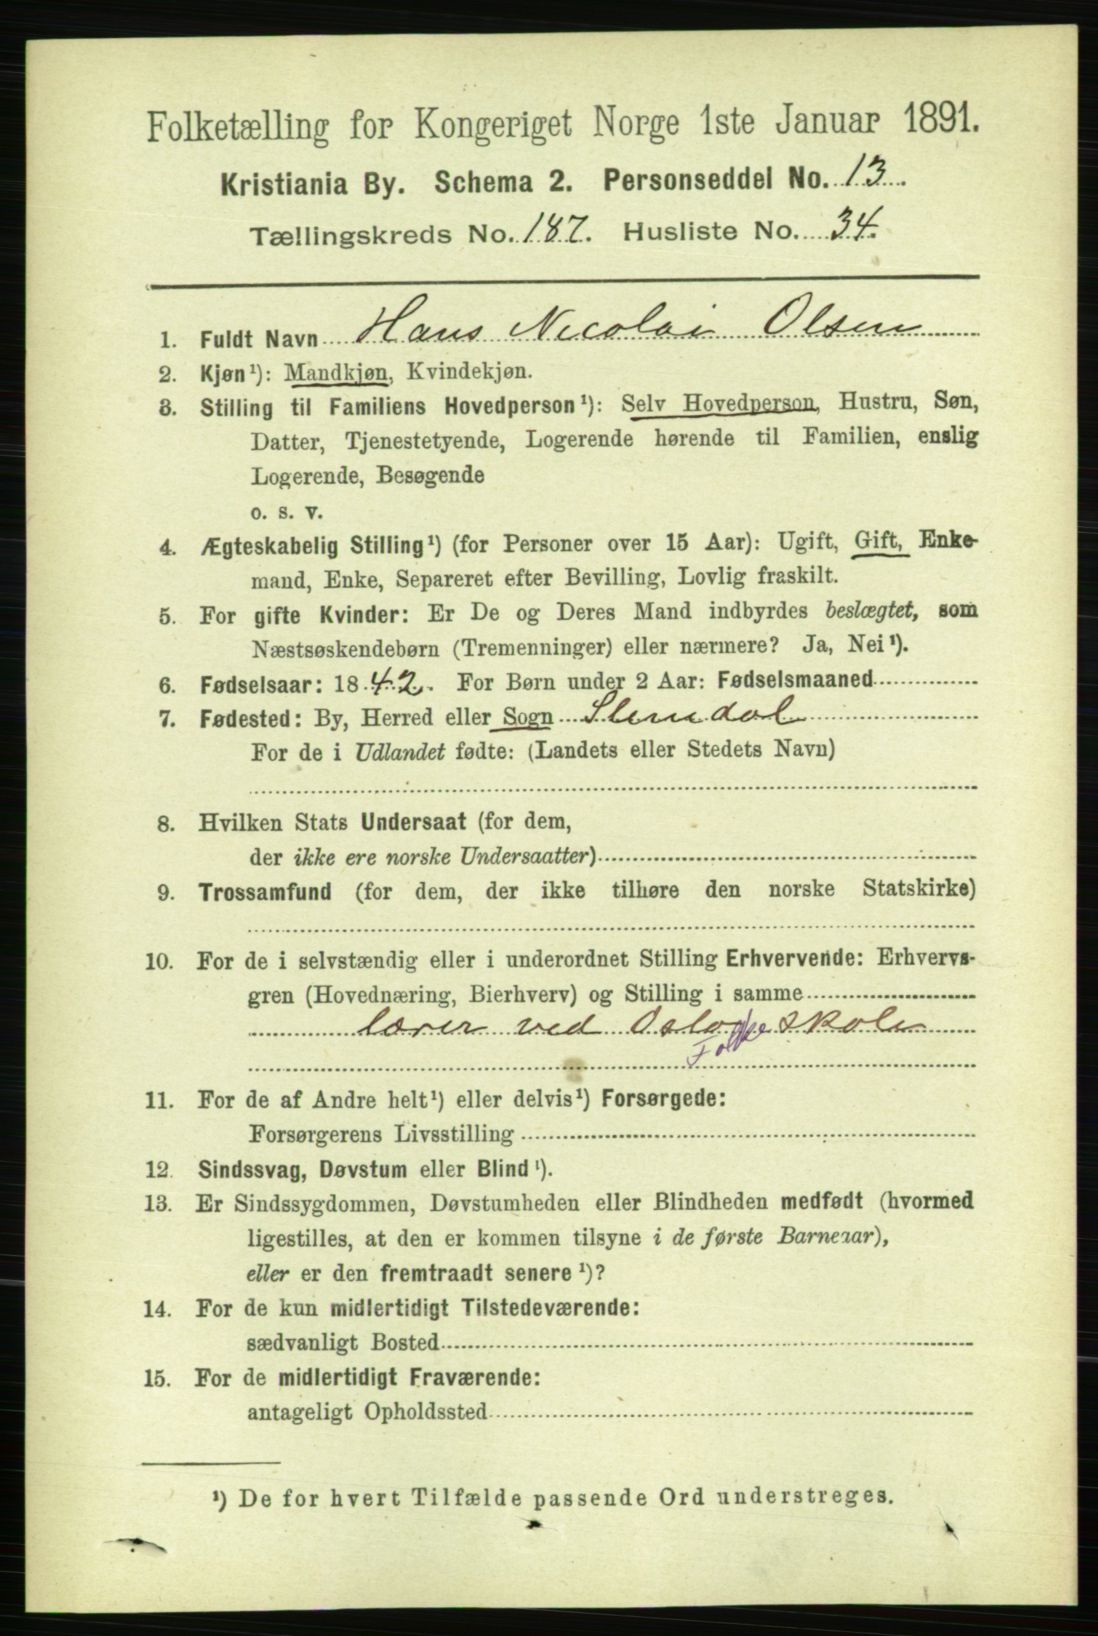 Folketælling for Kongeriget Norge 1ste Januar 1891.
Kristiania By. Schema 2. Personseddel No. 13.
Tællingskreds No. 187. Husliste No. 34.
1. Fuldt Navn Hans Nicolai Olsen
2. Kjøn¹): Mandkjøn, Kvindekjøn.
3. Stilling til Familiens Hovedperson¹): Selv Hovedperson, Hustru, Søn,
Datter, Tjenestetyende, Logerende hørende til Familien, enslig
Logerende, Besøgende
o. s. v.
4. Ægteskabelig Stilling¹) (for Personer over 15 Aar): Ugift, Gift, Enke-
mand, Enke, Separeret efter Bevilling, Lovlig fraskilt.
5. For gifte Kvinder: Er De og Deres Mand indbyrdes beslægtet, som
Næstsøskendebørn (Tremenninger) eller nærmere? Ja, Nei¹).
6. Fødselsaar: 1842. For Børn under 2 Aar: Fødselsmaaned
7. Fødested: By, Herred eller Sogn
For de i Udlandet fødte: (Landets eller Stedets Navn)
8. Hvilken Stats Undersaat (for dem,
der ikke ere norske Undersaatter)
9. Trossamfund (for dem, der ikke tilhøre den norske Statskirke)
10. For de i selvstændig eller i underordnet Stilling Erhvervende: Erhvervs-
gren (Hovednæring, Bierhverv) og Stilling i samme
lærer ved Oslo skole
Folke
11. For de af Andre helt¹) eller delvis¹) Forsørgede:
Forsørgerens Livsstilling
12. Sindssvag, Døvstum eller Blind¹).
13. Er Sindssygdommen, Døvstumheden eller Blindheden medfødt (hvormed
ligestilles, at den er kommen tilsyne i de første Barneaar),
eller er den fremtraadt senere¹)?
14. For de kun midlertidigt Tilstedeværende:
sædvanligt Bosted
15. For de midlertidigt Fraværende:
antageligt Opholdssted
¹) De for hvert Tilfælde passende Ord understreges.